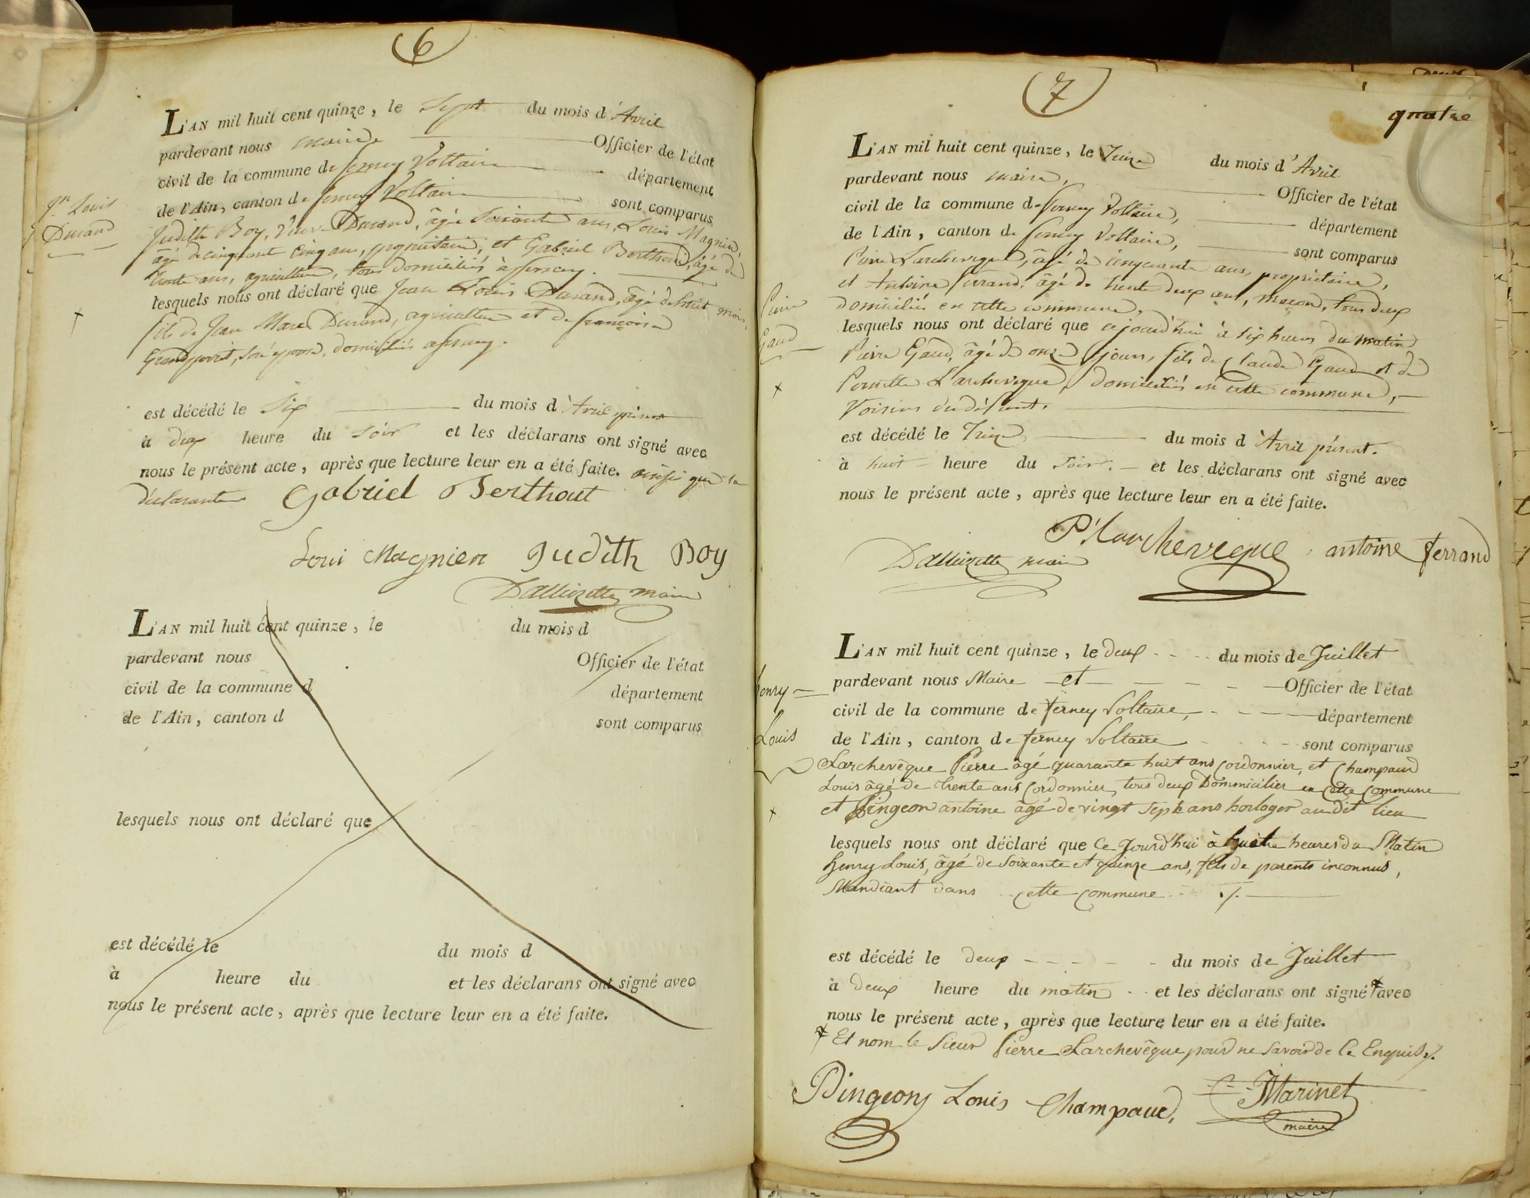 6
L'AN mil huit cent quinze, le Sept du mois d'Avril
pardevant nous maire Officier de l'état
civil de la commune de ferney Voltaire département
de l'Ain, canton de ferney Voltaire sont comparus
Jn Louis
Durand
Judith Boy, veuve Durand, âgée Soixante ans, Louis Magnien,
âgé de cinquante cinq ans, propriétaire, et Gabriel Berthout, âgé de
trente ans, agriculteur, tous domiciliés à ferney.
lesquels nous ont déclaré que Jean Louis Durand, âgé de huit mois,
fils de Jean Marc Durand, agriculteur et de françoise
son épouse, domiciliés à ferney.
est décédé le Six du mois d'Avril présent
à deux heure du soir et les déclarans ont signé avec
nous le présent acte, après que lecture leur en a été faite. ainsi que la
déclarante
Gabriel Berthout
Loui Magnien Judith Boy
Dalliozette maire
L'AN mil huit cent quinze, le du mois d
pardevant nous Officier de l'état
civil de la commune d département
de l'Ain, canton d sont comparus
lesquels nous ont déclaré que
est décédé le du mois d
à heure du et les déclarans ont signé avec
nous le présent acte, après que lecture leur en a été faite.
7
quatre
L'AN mil huit cent quinze, le Treize du mois d'Avril
pardevant nous maire, Officier de l'état
civil de la commune de ferney Voltaire, département
de l'Ain, canton de ferney Voltaire, sont comparus
Pierre Larcheveque, âgé de cinquante ans, propriétaire,
et Antoine ferrand, âgé de trente deux ans, maçon, tous deux
domiciliés en cette commune,
Pierre
Gaud
lesquels nous ont déclaré que cejourd'hui à six heures du matin
Pierre Gaud, âgé de onze jours, fils de Claude Gaud et de
Pernette Larcheveque, domiciliés en cette commune,
Voisins du défunt.
est décédé le Treize du mois d'Avril présent.
à huit heure du soir. et les déclarans ont signé avec
nous le présent acte, après que lecture leur en a été faite.
P. Larcheveque antoine ferrand
Dalliozette maire
L'AN mil huit cent quinze, le deux du mois de Juillet
pardevant nous Maire et Officier de l'état
civil de la commune de ferney Voltaire, département
de l'Ain, canton de ferney Voltaire sont comparus
henry
Louis
Larchevêque Pierre âgé quarante huit ans cordonnier, et Champaud
Louis âgé de trente ans Cordonnier, tous deux Dommicilier en Cette Commune
et Pingeon antoine âgé de vingt sept ans horloger au dit lieu
lesquels nous ont déclaré que Ce Jourd'hui à heures du Matin
henry Louis, âgé de Soixante et quinze ans, fils de parents inconnus,
Mandiant dans cette commune ./.
est décédé le deux du mois de Juillet
à deux heure du matin et les déclarans ont signé avec
nous le présent acte, après que lecture leur en a été faite.
Et nom le Sieur Pierre Larchevêque pour ne savoir de Ce Enquis
Pingeon Louis Champaud, Marinet
maire